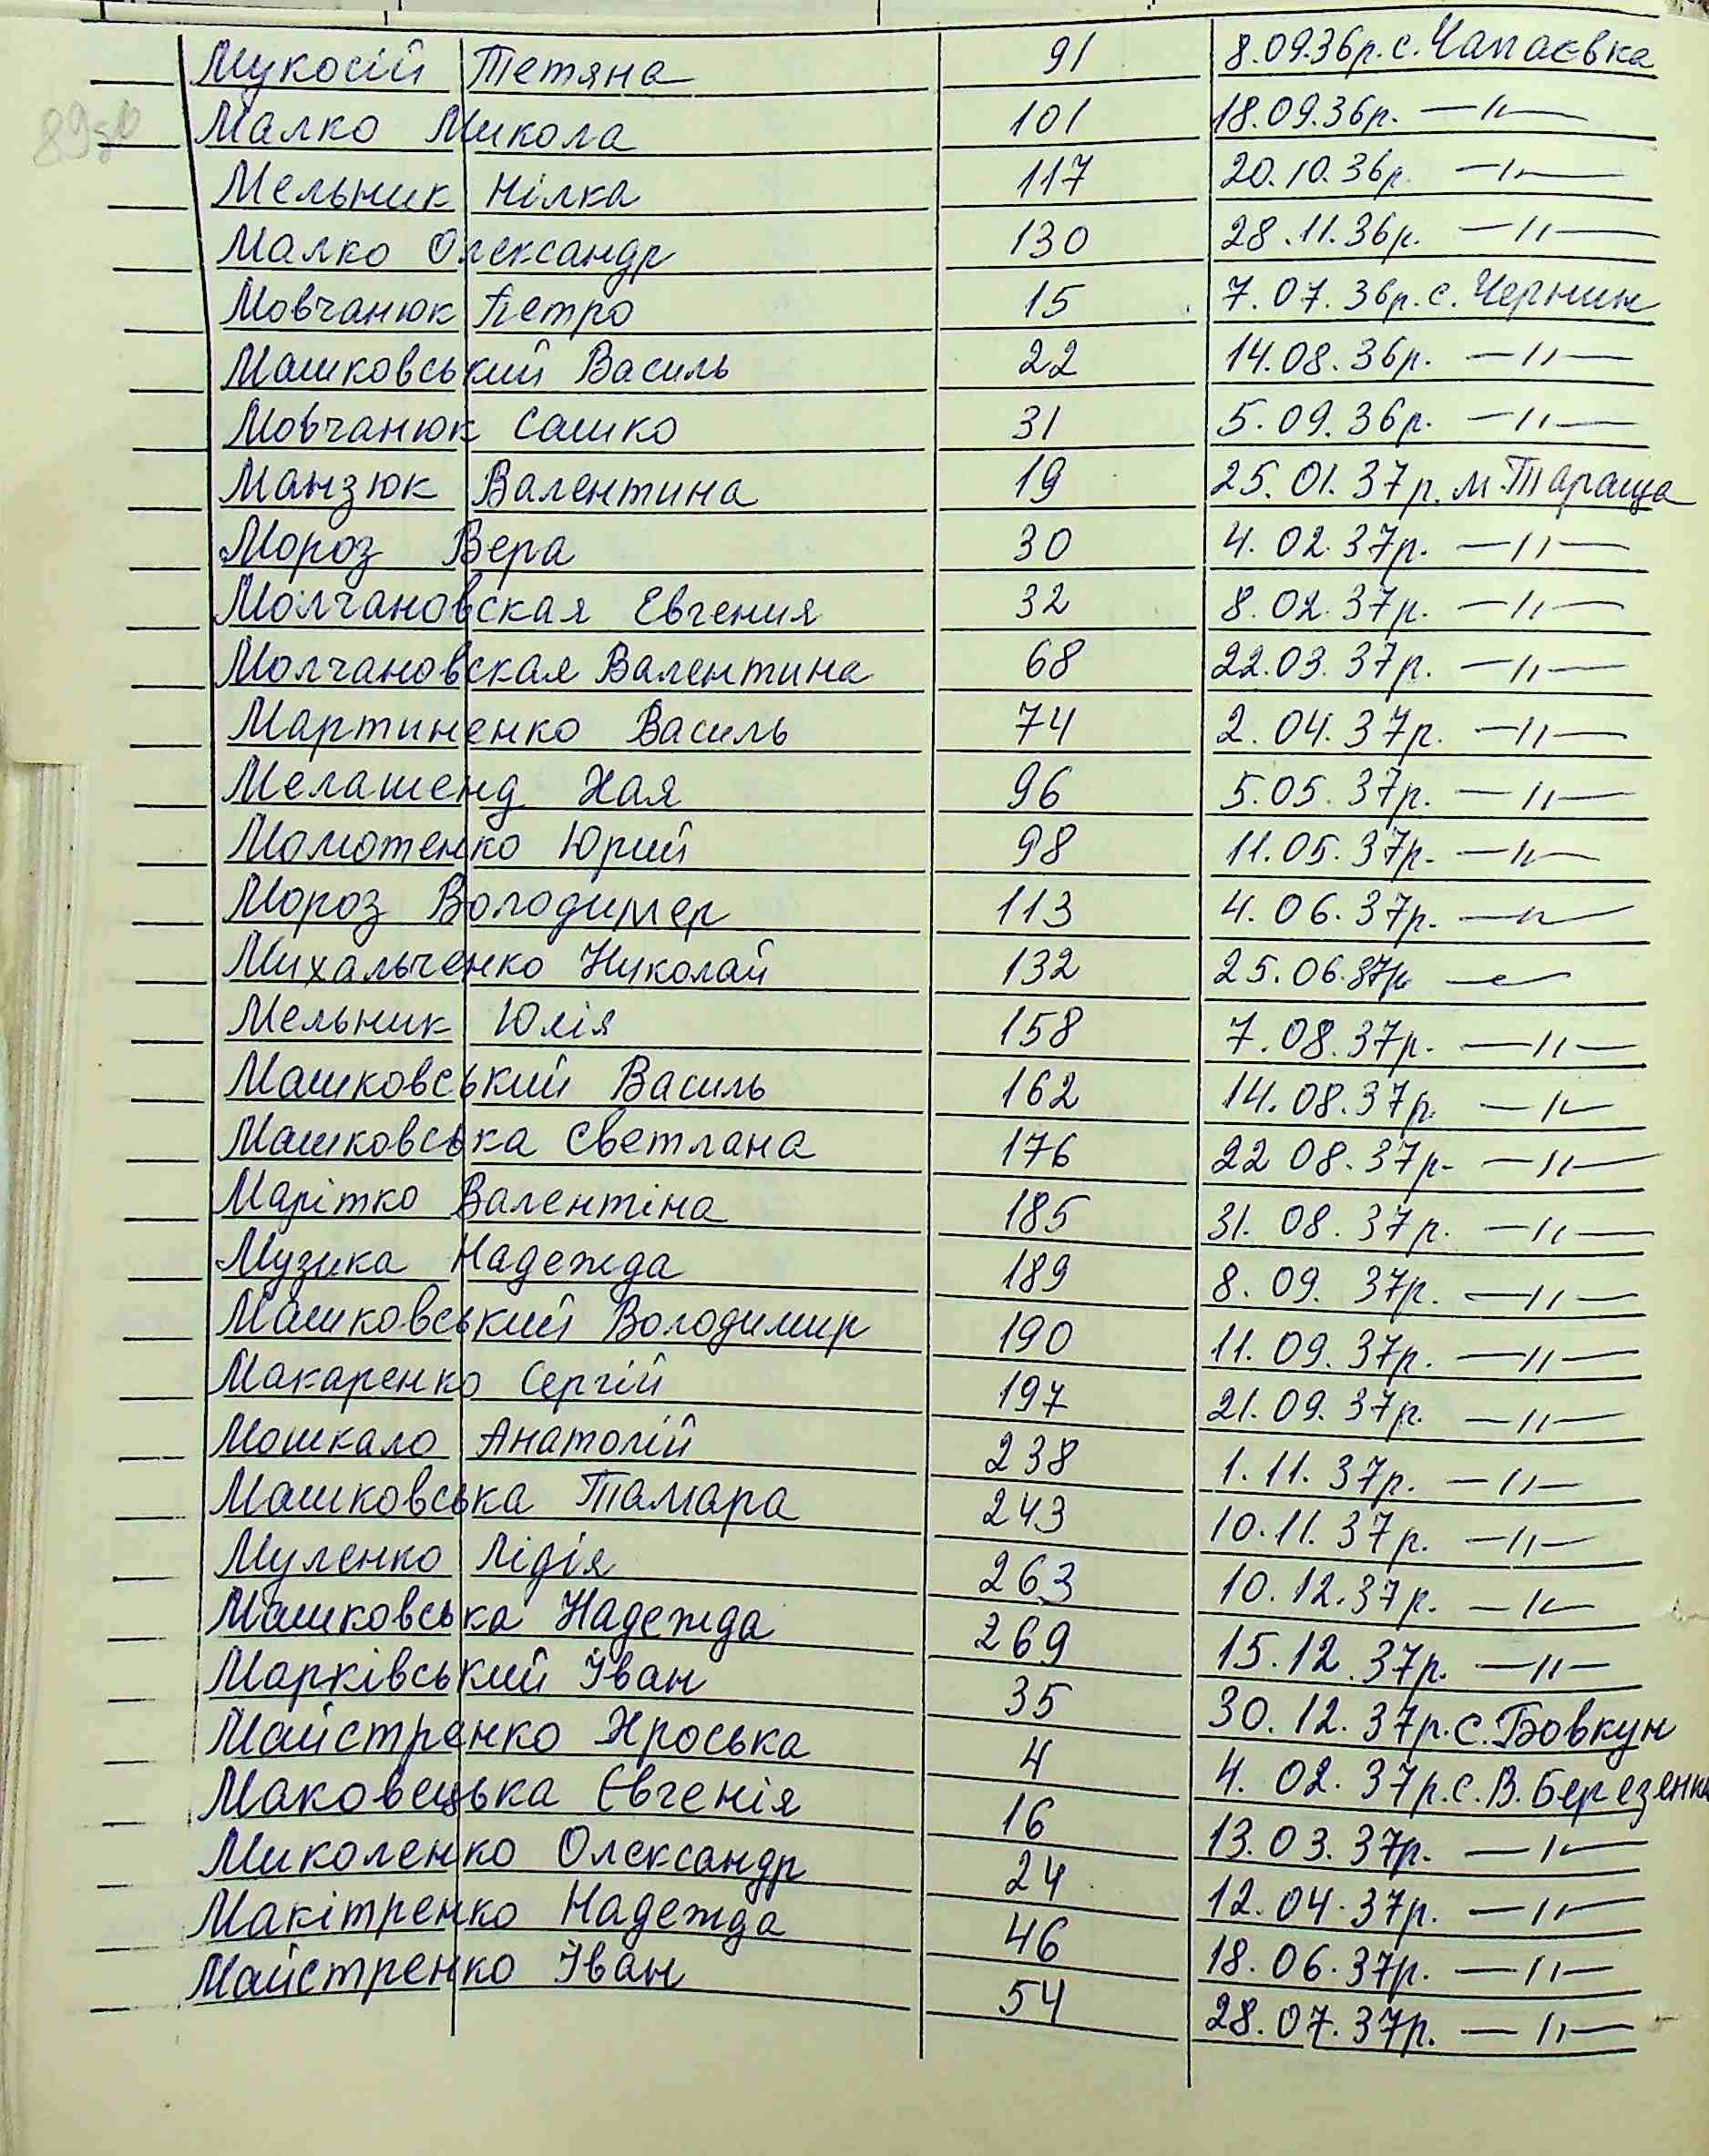 Мукосій Тетяна 91 8.09.36р. с. Чапаєвка
Малко Микола 101 18.09.36р. —"—
Мельник Нілка 117 20.10.36р. —"—
Малко Олександр 130 28.11.36р. —"—
Мовчанюк Петро 15 7.07.36р. с. Чернин
Машковський Василь 22 14.08.36р. —"—
Мовчанюк Сашко 31 5.09.36р. —"—
Манзюк Валентина 19 25.01.37р. м. Тараща
Мороз Вера 30 4.02.37р. —"—
Молчановская Евгения 32 8.02.37р. —"—
Молчановская Валентина 68 22.03.37р. —"—
Мартиненко Василь 74 2.04.37р. —"—
Мелашенд Хая 96 5.05.37р. —"—
Момотенко Юрий 98 11.05.37р. —"—
Мороз Володимер 113 4.06.37р. —"—
Михальченко Николай 132 25.06.37р. —"—
Мельник Юлія 158 7.08.37р. —"—
Машковський Василь 162 14.08.37р. —"—
Машковська Светлана 176 22 08.37р. —"—
Марітко Валентіна 185 31.08.37р. —"—
Музика Надежда 189 8.09.37р. —"—
Машковський Володимир 190 11.09.37р. —"—
Макаренко Сергій 197 21.09.37р. —"—
Мошкало Анатолій 238 1.11.37р. —"—
Машковська Тамара 243 10.11.37р. —"—
Муленко Лідія 263 10.12.37р. —"—
Машковська Надежда 269 15.12.37р. —"—
Марківський Іван 35 30.12.37р. с. Бовкун
Майстренко Хроська 4 4.02.37р. с. В. Березенка
Маковецька Євгенія 16 13.03.37р. —"—
Миколенко Олександр 24 12.04.37р. —"—
Макітренко Надежда 46 18.06.37р. —"—
Майстренко Іван 54 28.07.37р. —"—